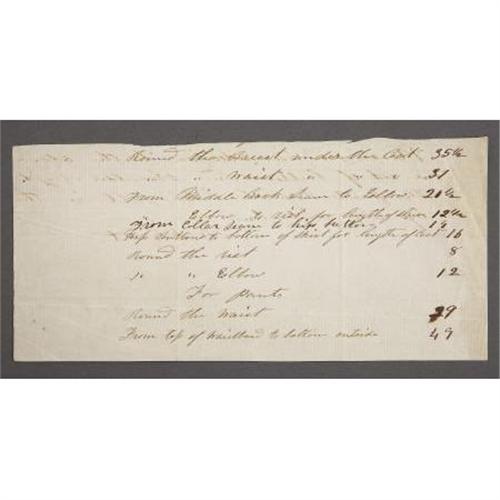 Round the Breast under the Coat 35 1/2
" " waist " " " 31
From Middle Back Seam to Elbow 21 1/2
Elbow to rist for length of sleeve 12 1/2
From Collar Seam to hips button 19
Hips buttons to bottom of skirt for length of Coat 16
Round the rist 8
" " Elbow 12
For pants
Round the waist 29
From top of waistband to bottom outside 49